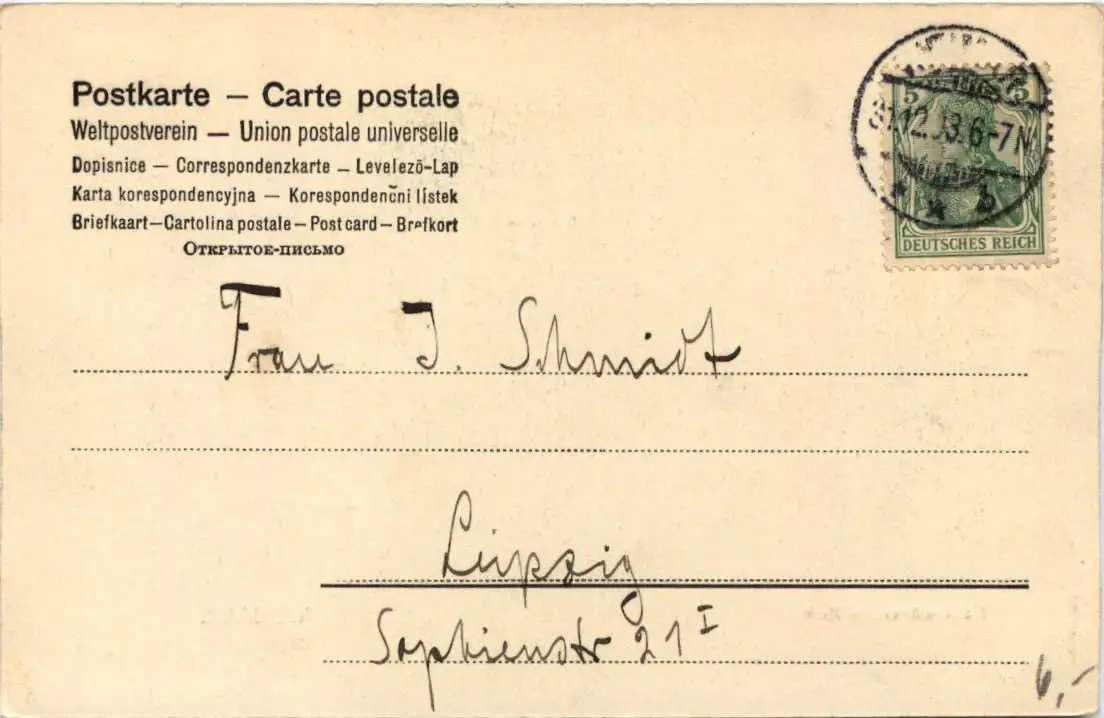 Postkarte — Carte postale
Weltpostverein — Union postale universelle
Dopisnice — Correspondenzkarte — Levelezö-Lap
Karta korespondencyjna — Korespondenčni listek
Briefkaart—Cartolina postale—Post card—Brefkort
Открытое-письмо
5 5
31.12.03.6-7N
* b
DEUTSCHES REICH
Frau J. Schmidt
Leipzig
Sophienstr 21 I
6,-